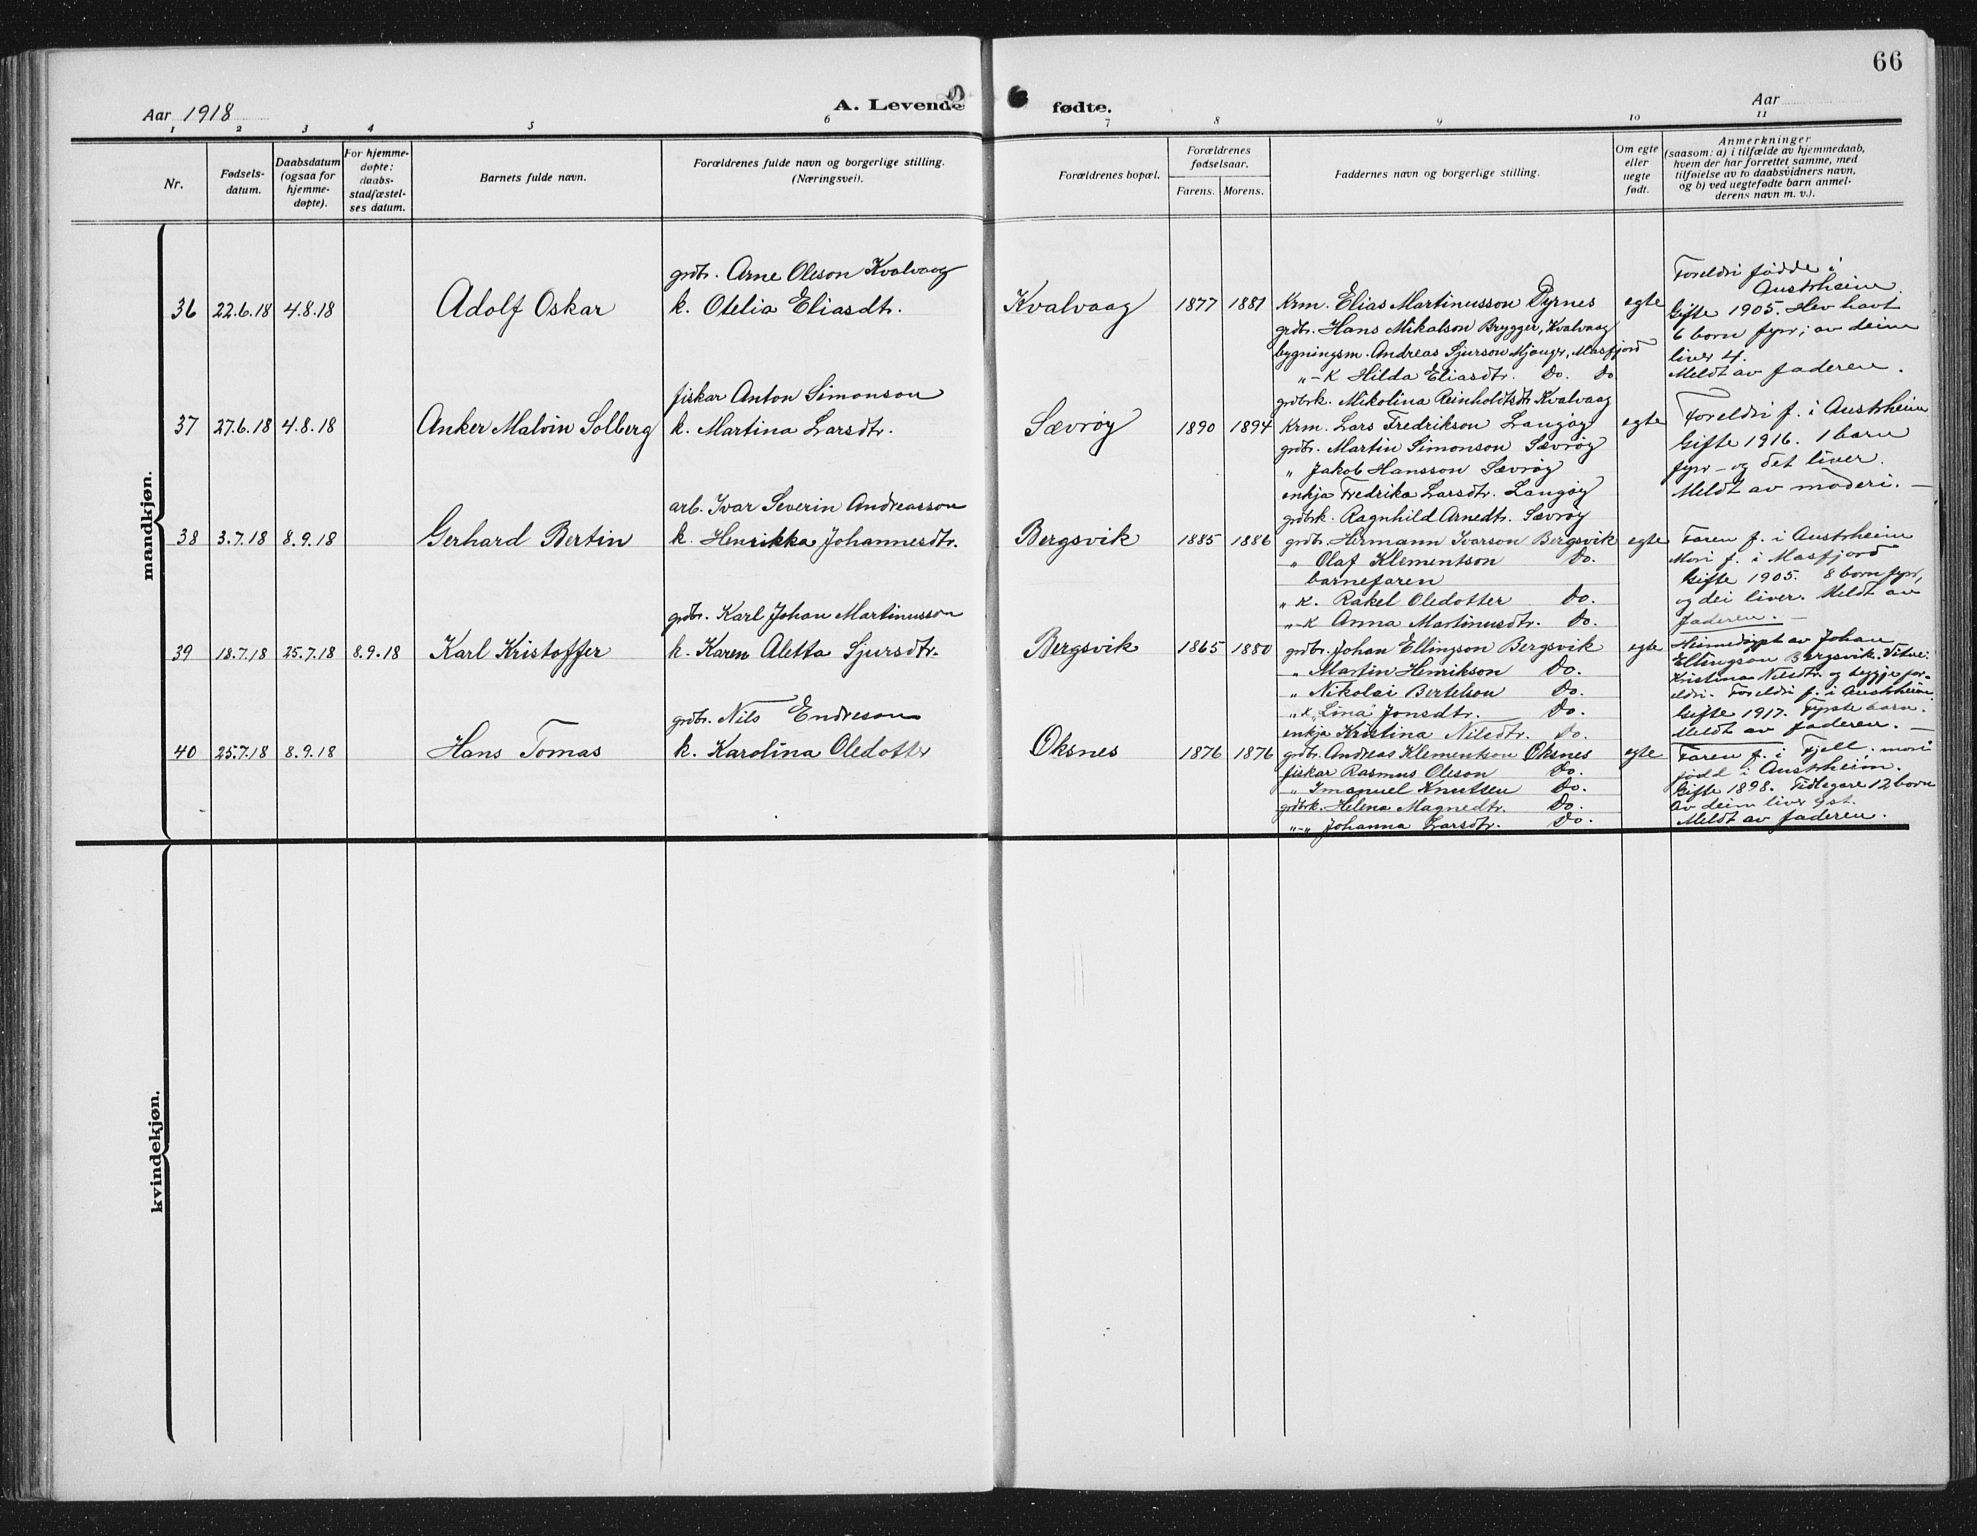 66
Aar 1918
A. Levende
fødte.
Aar
1 2 3 4 5 6 7 8 9 10 11
Nr.
Fødsels-
datum.
Daabsdatum
(ogsaa for
hjemme-
døpte).
For hjemme-
døpte:
daabs-
stadfæstel-
ses datum.
Barnets fulde navn.
Forældrenes fulde navn og borgerlige stilling.
(Næringsvei).
Forældrenes bopæl.
Forældrenes
fødselsaar.
Farens. Morens.
Faddernes navn og borgerlige stilling.
Om egte
eller
uegte
født.
Anmerkninger
(saasom: a) i tilfælde av hjemmedaab,
hvem der har forrettet samme, med
tilføielse av to daabsvidners navn,
og b) ved uegtefødte barn anmel-
derens navn m. v.).
mandkjøn.
grdbr. Arne Oleson Kvalvaag
36 22.6.18 4.8.18 Adolf Oskar k. Otelia Eliasdtr. Kvalvaag 1877 1881
Krm. Elias Martinusson Dyrnes
grdbr. Hans Mikalson Brygger, Kvalvaag
bygningsm. Andreas Sjurson Mjanger, Masfjord
"-K Hilda Eliasdtr. Do. Do.
grdbrk. Mikolina Reinholdtsdtr Kvalvaag
egte
Foreldri fødde i
Austrheim.
Gifte 1905. Hev havt
6 born fyrr; av deim
liver 4.
Meldt av faderen.
fiskar Anton Simonson
37 27.6.18 4.8.18 Anker Malvin Solberg k. Martina Larsdtr. Sævrøy 1890 1894
Krm. Lars Fredrikson Langøy
grdbr. Martin Simonson Sævrøy
" Jakob Hansson Sævrøy
enkja Fredrika Larsdtr. Langøy
grdbrk. Ragnhild Arnedtr. Sævrøy
egte
Foreldri f. i Austrheim
Gifte 1916. 1 barn
fyrr – og det liver.
Meldt av moderi. –
arb. Ivar Severin Andreasson
38 3.7.18 8.9.18 Gerhard Bertin k. Henrikka Johannesdtr. Bergsvik 1885 1886
grdbr. Hermann Ivarson Bergsvik
" Olaf Klementson Do.
barnefaren
"K. Rakel Oledotter Do.
"-K Anna Martinusdtr. Do.
egte
Faren f. i Austrheim
Mori f. i Masfjord
Gifte 1905. 8 born fyrr,
og dei liver. Meldt av
faderen. –
grdbr. Karl Johan Martinusson
39 18.7.18 25.7.18 8.9.18 Karl Kristoffer k. Karen Aletta Sjursdtr. Bergsvik 1865 1880
grdbr. Johan Ellingson Bergsvik
" Martin Henrikson Do.
" Nikolai Bertelson Do.
"K. Lina Jonsdtr. Do.
enkja Kristina Nilsdtr. Do.
egte
Heimedøypt av Johan
Ellingson Bergsvik. Vitne:
Kristina Nilsdtr og begge for-
eldri. Foreldri f. i Austrheim
Gifte 1917. Fyrste barn.
Meldt av faderen. –
grdbr. Nils Endreson
40 25.7.18 8.9.18 Hans Tomas k. Karolina Oledotter Oksnes 1876 1876
grdbr. Andreas Klementson Oksnes
fiskar Rasmus Oleson Do.
" Imanuel Knutsen Do.
grdbrk. Helena Magnedtr. Do.
"-" Johanna Larsdtr. Do.
egte
Faren f. i Fjell. mori
fødd i Austrheim.
Gifte 1898. Tidlegare 12 born
Av deim liver 9 st.
Meldt av faderen.
kvindekjøn.